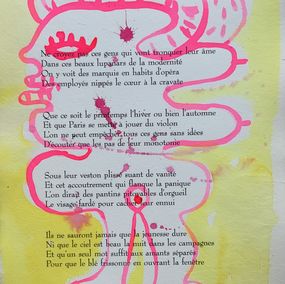 Ne croyez pas ces gens qui vont tronquer leur âme
Dans ces beaux lupanars de la modernité
On y voit des marquis en habits d'opéra
Des employés nippés le cœur à la cravate
Que ce soit le printemps l'hiver ou bien l'automne
Et que Paris se mette à jouer du violon
L'on ne peut empêcher tous ces gens sans idées
D'écouter que les pas de leur monotonie
Sous leur veston plissé suant de vanité
Et cet accoutrement qui flanque la panique
L'on dirait des pantins pitoyables d'orgueil
Le visage fardé pour cacher leur ennui
Ils ne sauront jamais que la jeunesse dure
Ni que le ciel est beau la nuit dans les campagnes
Et qu'un seul mot suffit aux amants séparés
Pour que le blé frissonne en ouvrant la fenêtre